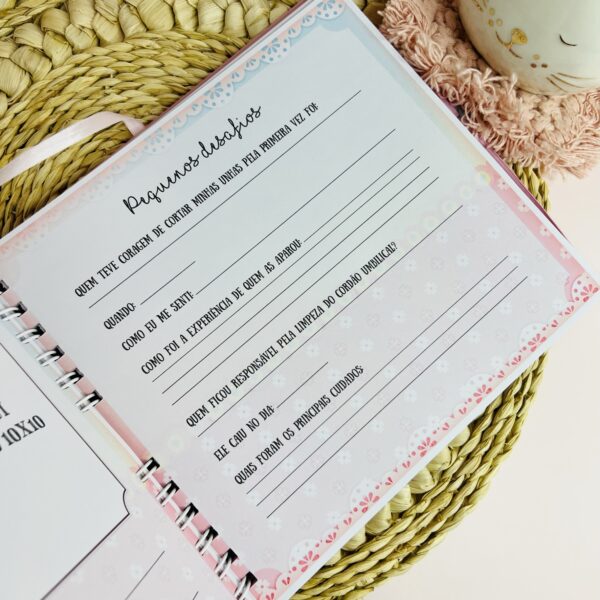 Pequenos desafios
QUEM TEVE CORAGEM DE CORTAR MINHAS UNHAS PELA PRIMEIRA VEZ FOI:
QUANDO:
COMO EU ME SENTI:
COMO FOI A EXPERIÊNCIA DE QUEM AS APAROU:
QUEM FICOU RESPONSÁVEL PELA LIMPEZA DO CORDÃO UMBILICAL?
ELE CAIU NO DIA:
QUAIS FORAM OS PRINCIPAIS CUIDADOS:
10X10